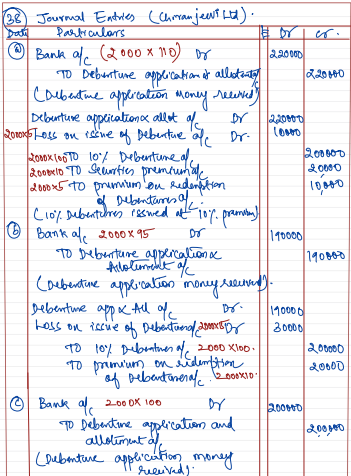 38 Journal Entries (Chiranjeevi Ltd).
Date Particulars Dr Cr.
(a) Bank a/c (2000 x 110) Dr 220000
TO Debenture application & allotment a/c 220000
(Debenture application money received)
Debenture application & allot a/c Dr 220000
2000x5 Loss on issue of Debenture a/c Dr 10000
2000x100 TO 10% Debenture a/c 200000
2000x10 TO Securities premium a/c 20000
2000x5 TO premium on redemption 10,000
of Debentures a/c.
(10% Debentures issued at 10% premium)
(b) Bank a/c 2000 x 95 Dr 190000
TO Debenture application &
Allotment a/c 190000
(Debenture application money received).
Debenture app & All a/c Dr. 190000
Loss on issue of Debentures a/c 2000x15 Dr 30000
TO 10% Debentures a/c 2000 x100. 200000
TO premium on redemption 20000
of Debentures a/c 2000x10.
(c) Bank a/c 2000 x 100 Dr 200000
TO Debenture application and
allotment a/c 200,000
(Debenture application money
received).